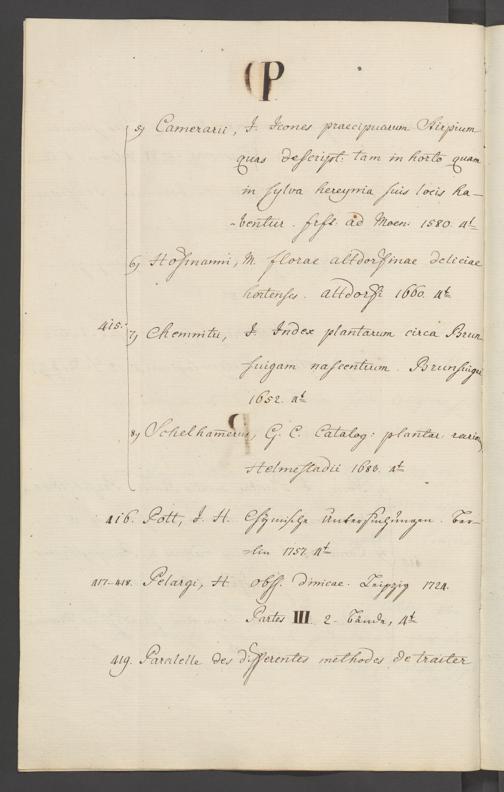 P
5) Camerarii, J. Icones praecipuarum Stirpium
quas descript: tam in horto quam
in sylva hercynia suis locis ha-
bentur. frfs. ad Moen: 1580. 4t
6) Hofmanni, M. florae altdorfinae deliciae
hortenses. altdorfi 1660. 4t
415. 7) Chemnitii, J. Index plantarum circa Brun
suigam nascentium. Brunsuigae
1652. 4t
8) Schelhamerus, G. C. Catalog: plantar: rarior
Helmestadii 1683. 4t
416. Pott, J. H. Chymische Untersuchungen. Ber-
lin 1757. 4t
417-418. Pelargi, H. obss. clinicae. Leipzig 1724.
Partes III. 2. Bände, 4t
419. Paralelle des differentes methodes de traiter